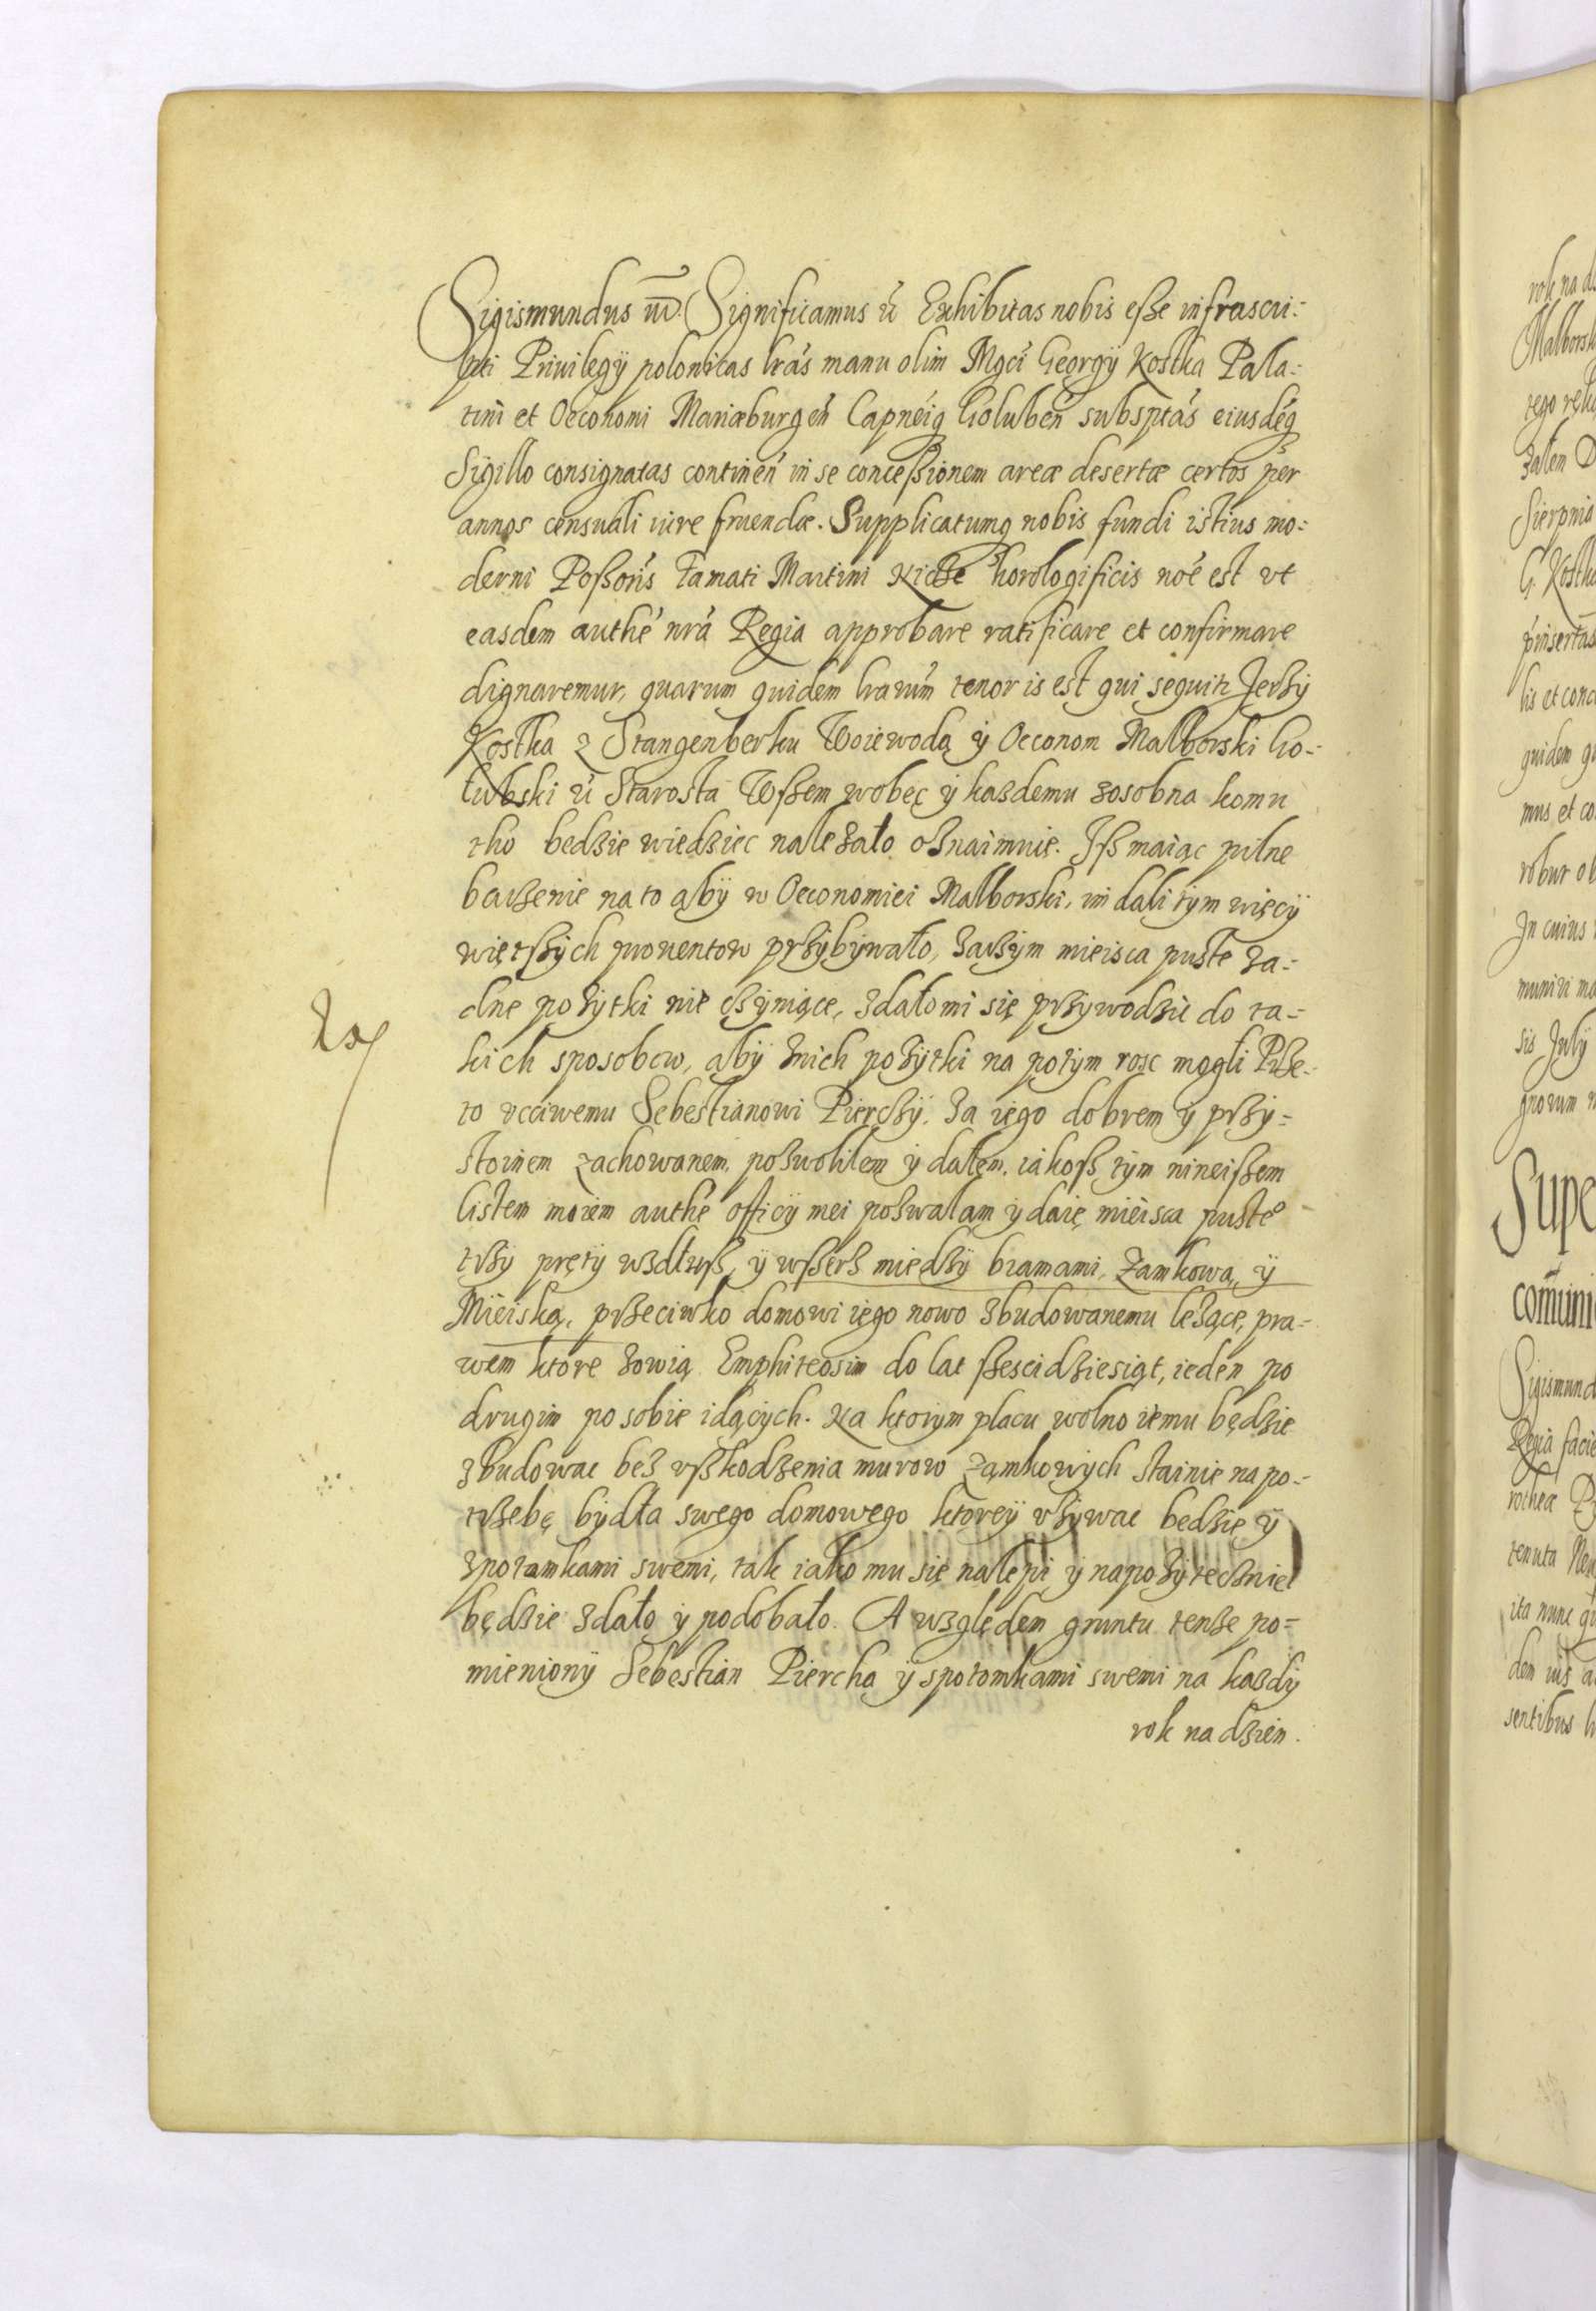 Sigismundus III. Significamus &c Exhibitas nobis eße infrascri-
pti Privilegÿ polonicas lrás manu olim Mgci Georgÿ Kostka Pala-
tini et Oeconomi Mariæburgeń Capneiq Golubeń subsptás eiusdéq
Sigillo consignatas contineń in se conceßionem areæ desertæ certos per
annos censuali iure fruendæ. Supplicatumq nobis fundi istius mo-
derni Poßoris famati Martini horologificis noé est vt
easdem authé nrá Regia approbare ratificare et confirmare
dignaremur, quarum quidem lrarúm tenor is est qui sequitr Jerzÿ
Kostka z Stangenberku Woiewoda ÿ Oeconom Malborski Go-
lubski &c Starosta Wßem wobec ÿ kazdemu zosobna komu
tho bedzie wiedziec nalezało oznaimuię. Jsz maiąc pilne
baczenie na to abÿ w Oeconomiei Malborski, im dali tým więcÿ
więtßÿch prouentow przÿbÿwało, zaczÿm mieisca puste za-
dne pozÿtki nie czÿniące, zdało mi się przÿwodzic do ta-
kich sposobow, abÿ znich pozÿtki na potÿm rosc mogli Prze-
to vcciwemu Sebestianowi Pierchÿ. Za iego dobrem ÿ przÿ-
stoinem zachowanem, pozwoliłem ÿ dałem, iakosz tÿm nineißem
listem moiem authé officÿ mei pozwalam ÿ daię mieisca puste
trzÿ prętÿ wzdłusz, ÿ wßerz miedzÿ bramami, Zamkową, ÿ
Mieiską, przeciwko domowi iego nowo zbudowanemu lezące, pra-
wem ktore zowią Emphiteosim do lat ßescidziesiąt, ieden po
drugim po sobie idącÿch. Na ktorÿm placu wolno iemu będzie
zbudowac bez vßkodzenia murow zamkowÿch stainie na po-
trzebę bÿdła swego domowego ktoreÿ vzÿwac bedzie ÿ
zpotamkami swemi, tak iako mu się nalepi ÿ napozÿtecznie
będzie zdało ÿ podobało. A względem gruntu tenze po-
mienionÿ Sebestian Piercha ÿ spotomkami swemi na kazdÿ
rok na dzien.